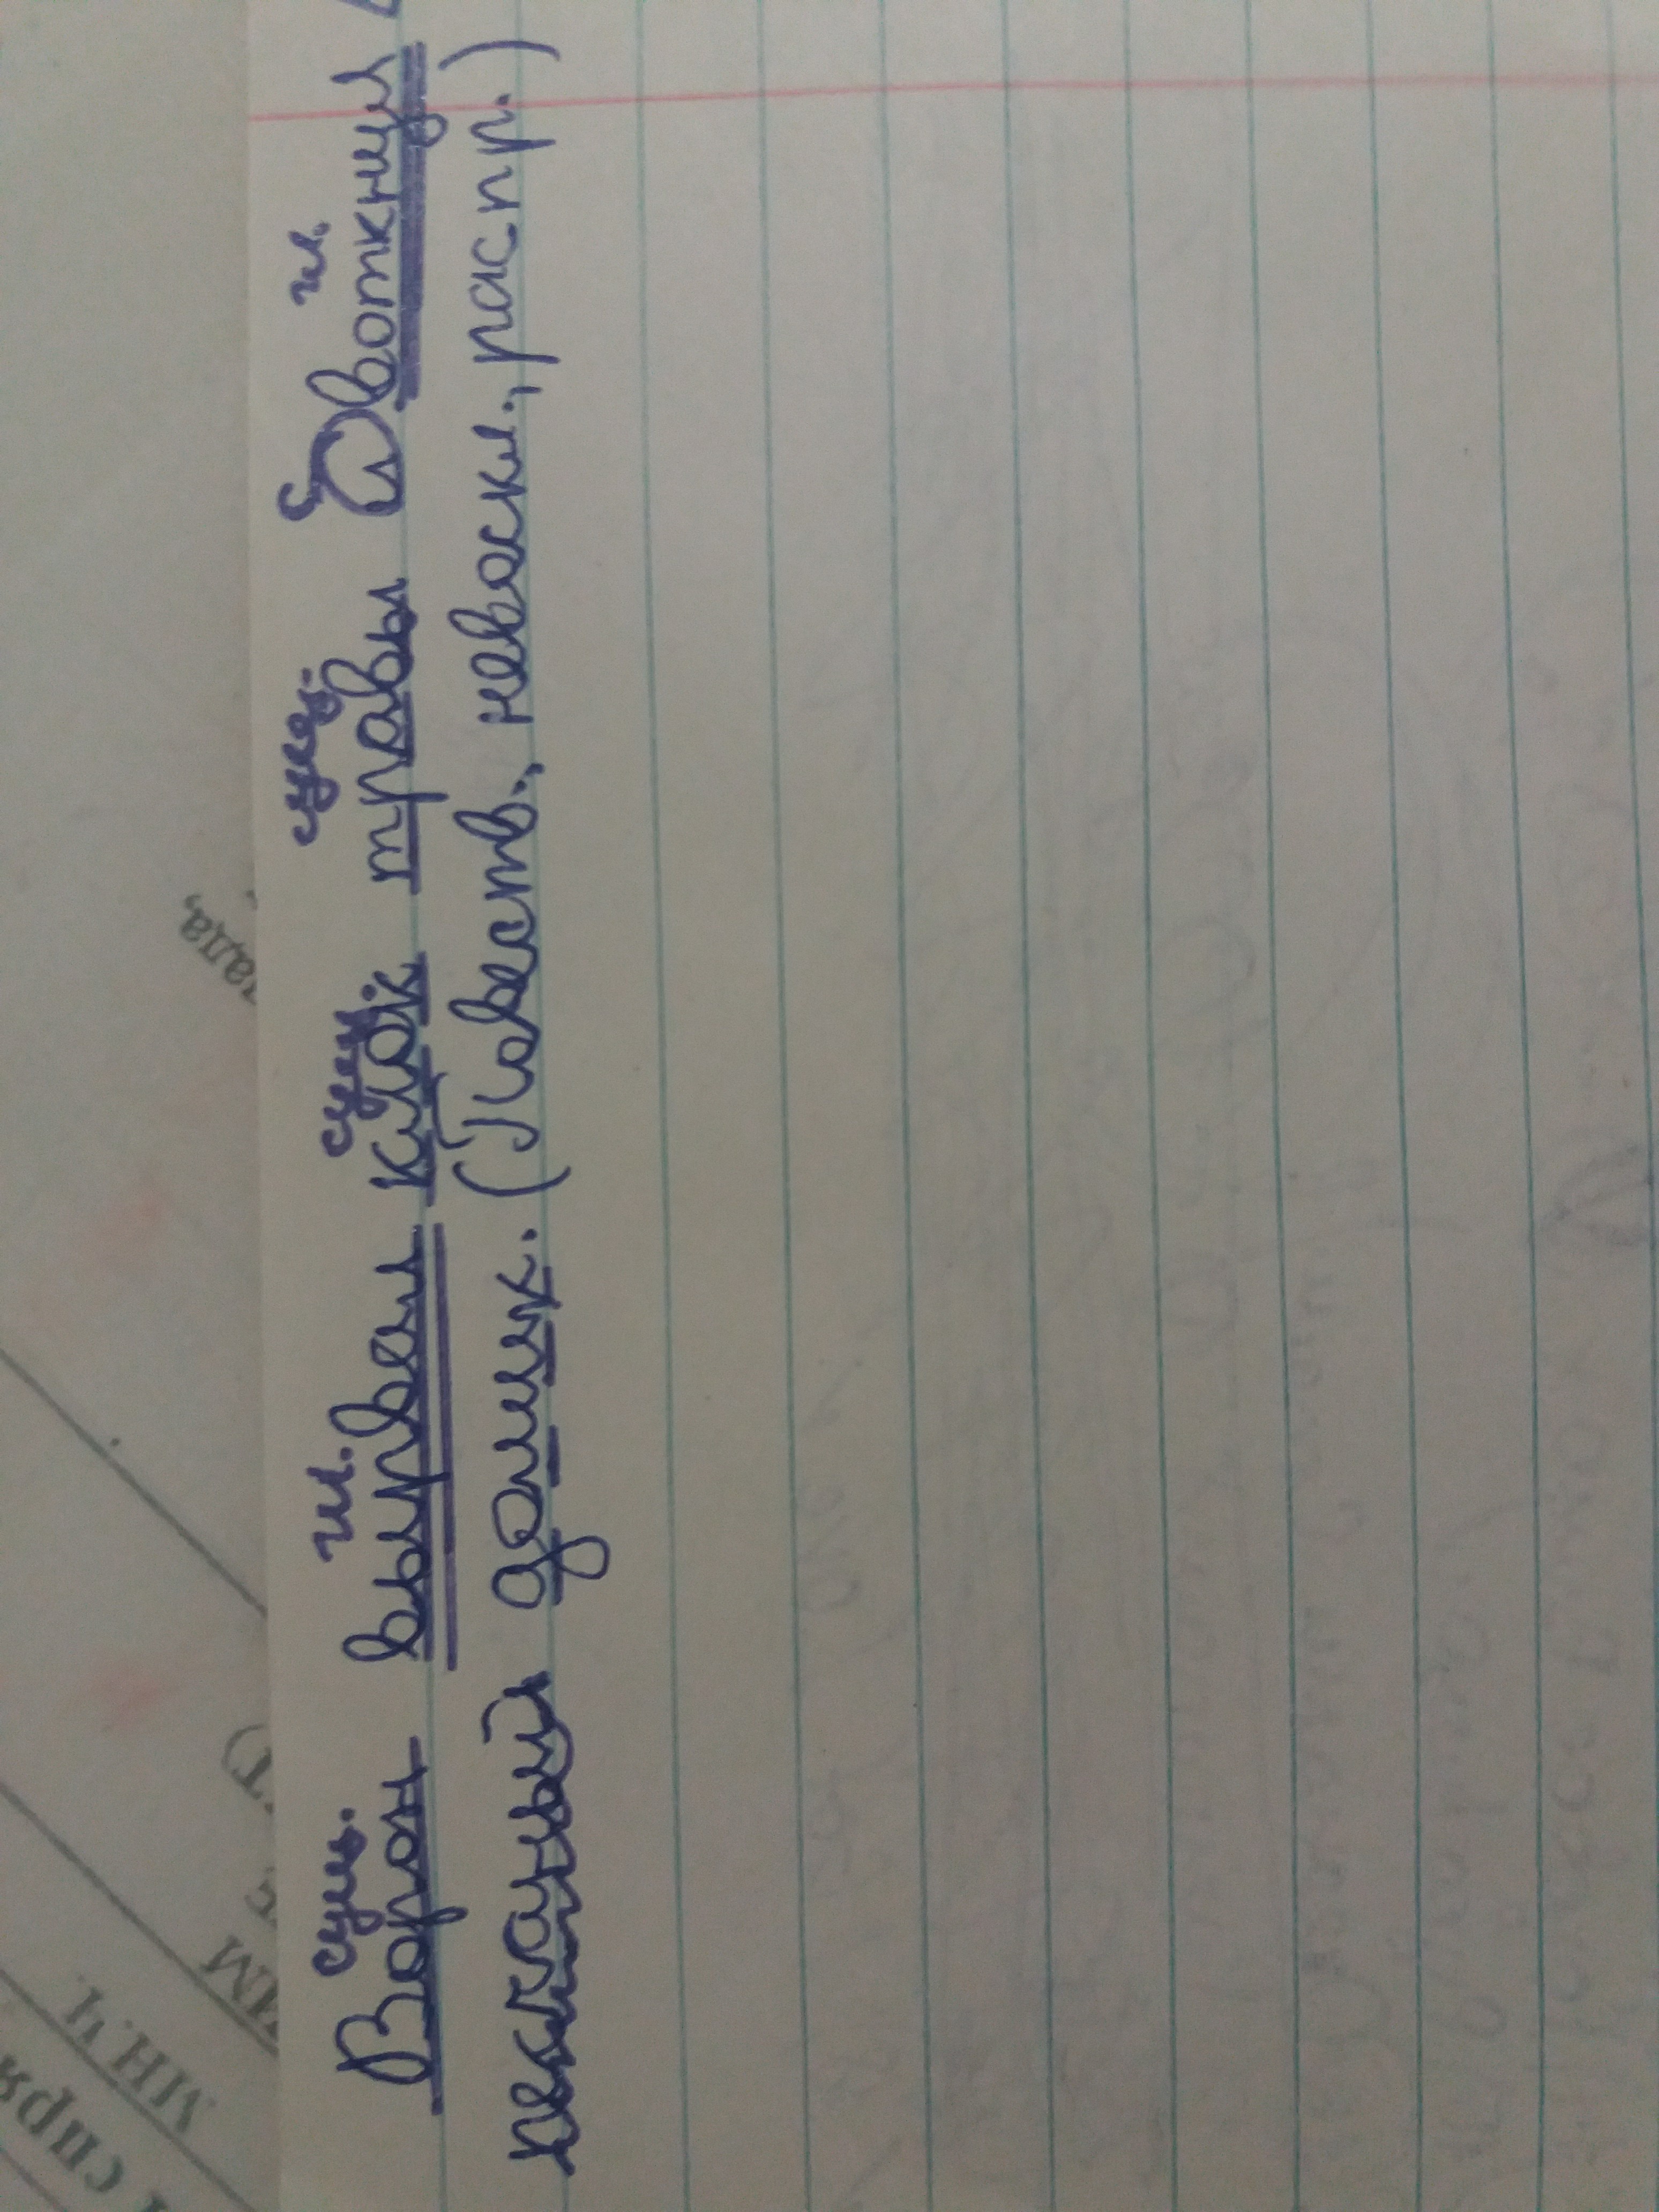 сущ. гл. сущ. сущ. с. гл.
Ворон вырвал клок травы и воткнул
песчаный домик. (Повеств., невоскл., распр.)
ада,
мн.ч.
спря